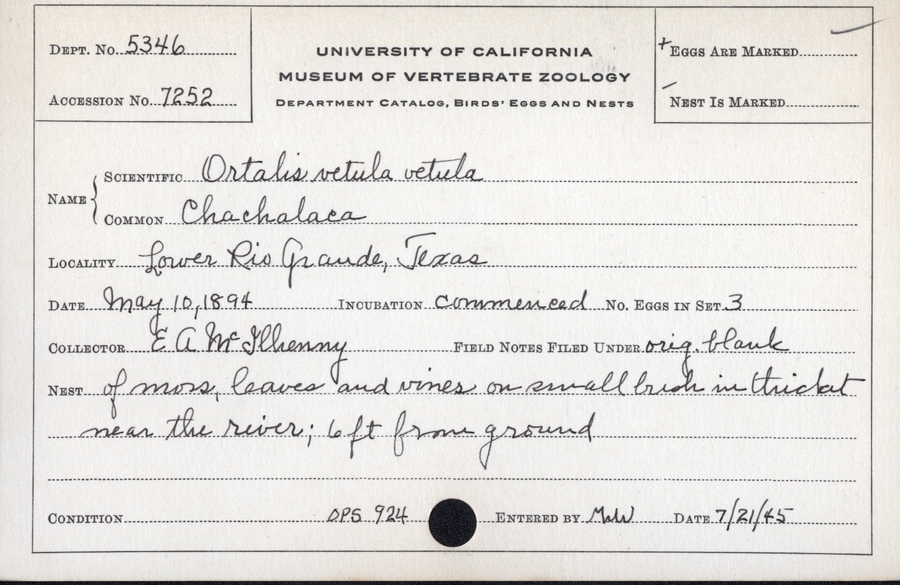 Dept. No. 5346
Accession No. 7252
UNIVERSITY OF CALIFORNIA
MUSEUM OF VERTEBRATE ZOOLOGY
Department Catalog, Birds' Eggs and Nests
+ Eggs Are Marked
- Nest Is Marked
Name { Scientific Ortalis vetula vetula
Common Chachalaca
Locality Lower Rio Grande, Texas
Date May 10, 1894 Incubation commenced No. Eggs in Set 3
Collector E A McIlhenny Field Notes Filed Under orig. blank
Nest of moss, leaves and vines on small bush in thicket
near the river; 6 ft from ground
Condition OPS 924 Entered by MWW Date 7/21/45